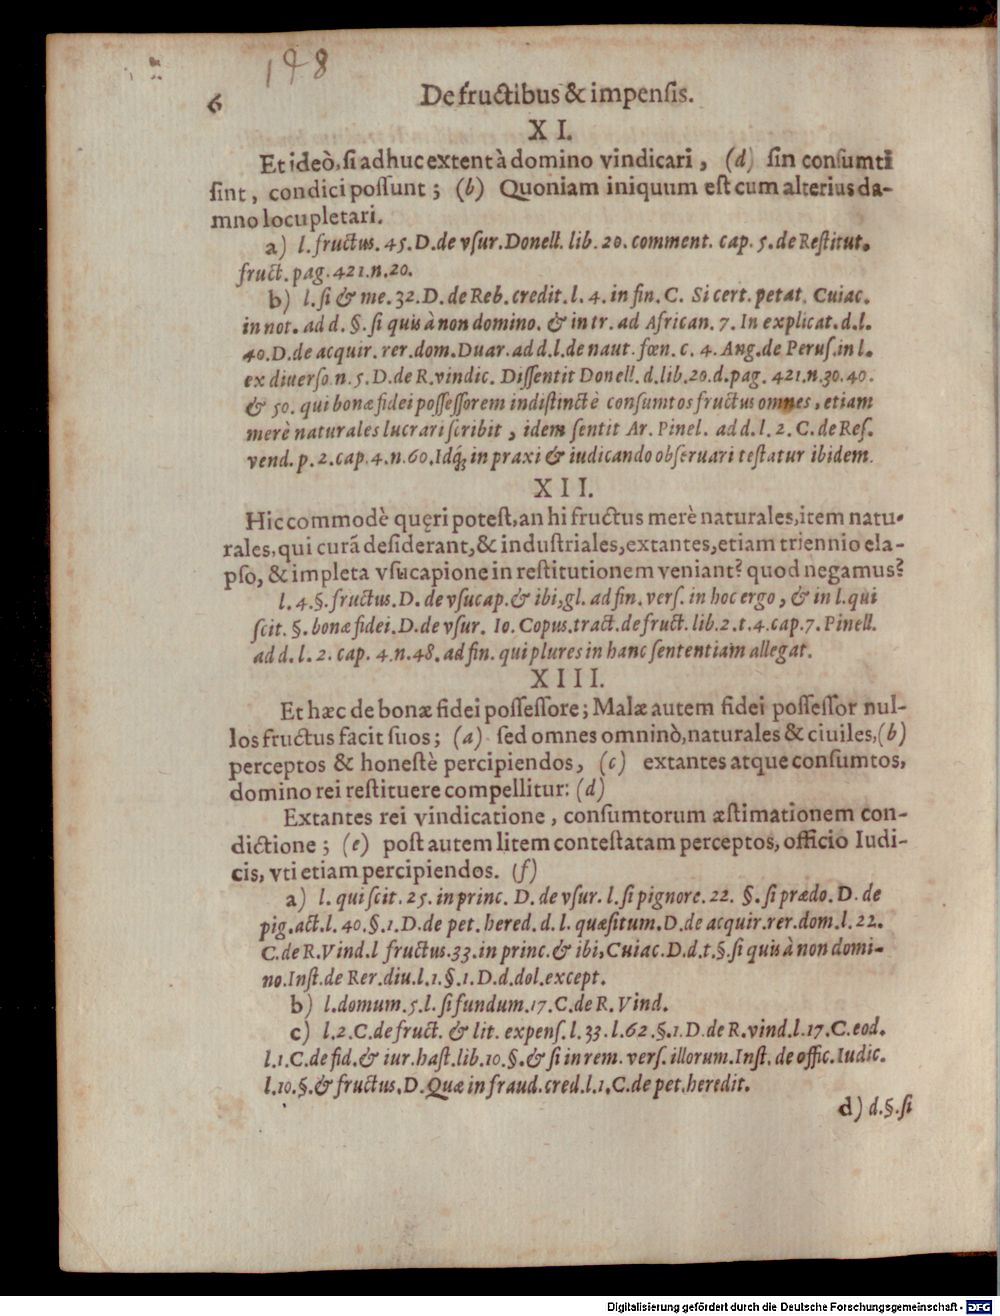 198
6 De fructibus & impensis.
XI.
Et ideò, si adhuc extent à domino vindicari, (d) sin consumti
sint, condici possunt; (b) Quoniam iniquum est cum alterius da-
mno locupletari.
a) l. fructus. 45. D. de vsur. Donell. lib. 20. comment. cap. 5. de Restitut.
fruct. pag. 421. n. 20.
b) l. si & me. 32. D. de Reb. credit. l. 4. in fin. C. Si cert. petat. Cuiac.
in not. ad d. §. si quis à non domino. & in tr. ad African. 7. In explicat. d. l.
40. D. de acquir. rer. dom. Duar. ad d. l. de naut. fœn. c. 4. Ang. de Perus. in l.
ex diuerso. n. 5. D. de R. vindic. Dissentit Donell. d. lib. 20. d. pag. 421. n. 30. 40.
& 50. qui bonæ fidei possessorem indistinctè consumtos fructus omnes, etiam
merè naturales lucrari scribit, idem sentit Ar. Pinel. ad d. l. 2. C. de Res.
vend. p. 2. cap. 4. n. 60. Idq́; in praxi & iudicando obseruari testatur ibidem.
XII.
Hic commodè quęri potest, an hi fructus merè naturales, item natu-
rales, qui curã desiderant, & industriales, extantes, etiam triennio ela-
pso, & impleta vsucapione in restitutionem veniant? quod negamus?
l. 4. §. fructus. D. de vsucap. & ibi, gl. ad fin. vers. in hoc ergo, & in l. qui
scit. §. bonæ fidei. D. de vsur. Io. Copus. tract. de fruct. lib. 2. t. 4. cap. 7. Pinell.
ad d. l. 2. cap. 4. n. 48. ad fin. qui plures in hanc sententiam allegat.
XIII.
Et hæc de bonæ fidei possessore; Malæ autem fidei possessor nul-
los fructus facit suos; (a) sed omnes omninò, naturales & ciuiles, (b)
perceptos & honestè percipiendos, (c) extantes atque consumtos,
domino rei restituere compellitur: (d)
Extantes rei vindicatione, consumtorum æstimationem con-
dictione; (e) post autem litem contestatam perceptos, officio Iudi-
cis, vti etiam percipiendos. (f)
a) l. qui scit. 25. in princ. D. de vsur. l. si pignore. 22. §. si prædo. D. de
pig. act. l. 40. §. 1. D. de pet. hered. d. l. quæsitum. D. de acquir. rer. dom. l. 22.
C. de R. Vind. l fructus. 33. in princ. & ibi, Cuiac. D. d. t. §. si quis à non domi-
no. Inst. de Rer. diu. l. 1. §. 1. D. d. dol. except.
b) l. domum. 5. l. si fundum. 17. C. de R. Vind.
c) l. 2. C. de fruct. & lit. expens. l. 33. l. 62. §. 1. D. de R. vind. l. 17. C. eod.
l. 1. C. de fid. & iur. hast. lib. 10. §. & si in rem. vers. illorum. Inst. de offic. Iudic.
l. 10. §. & fructus. D. Quæ in fraud. cred. l. 1. C. de pet. heredit.
d) d. §. si
Digitalisierung gefördert durch die Deutsche Forschungsgemeinschaft - DFG